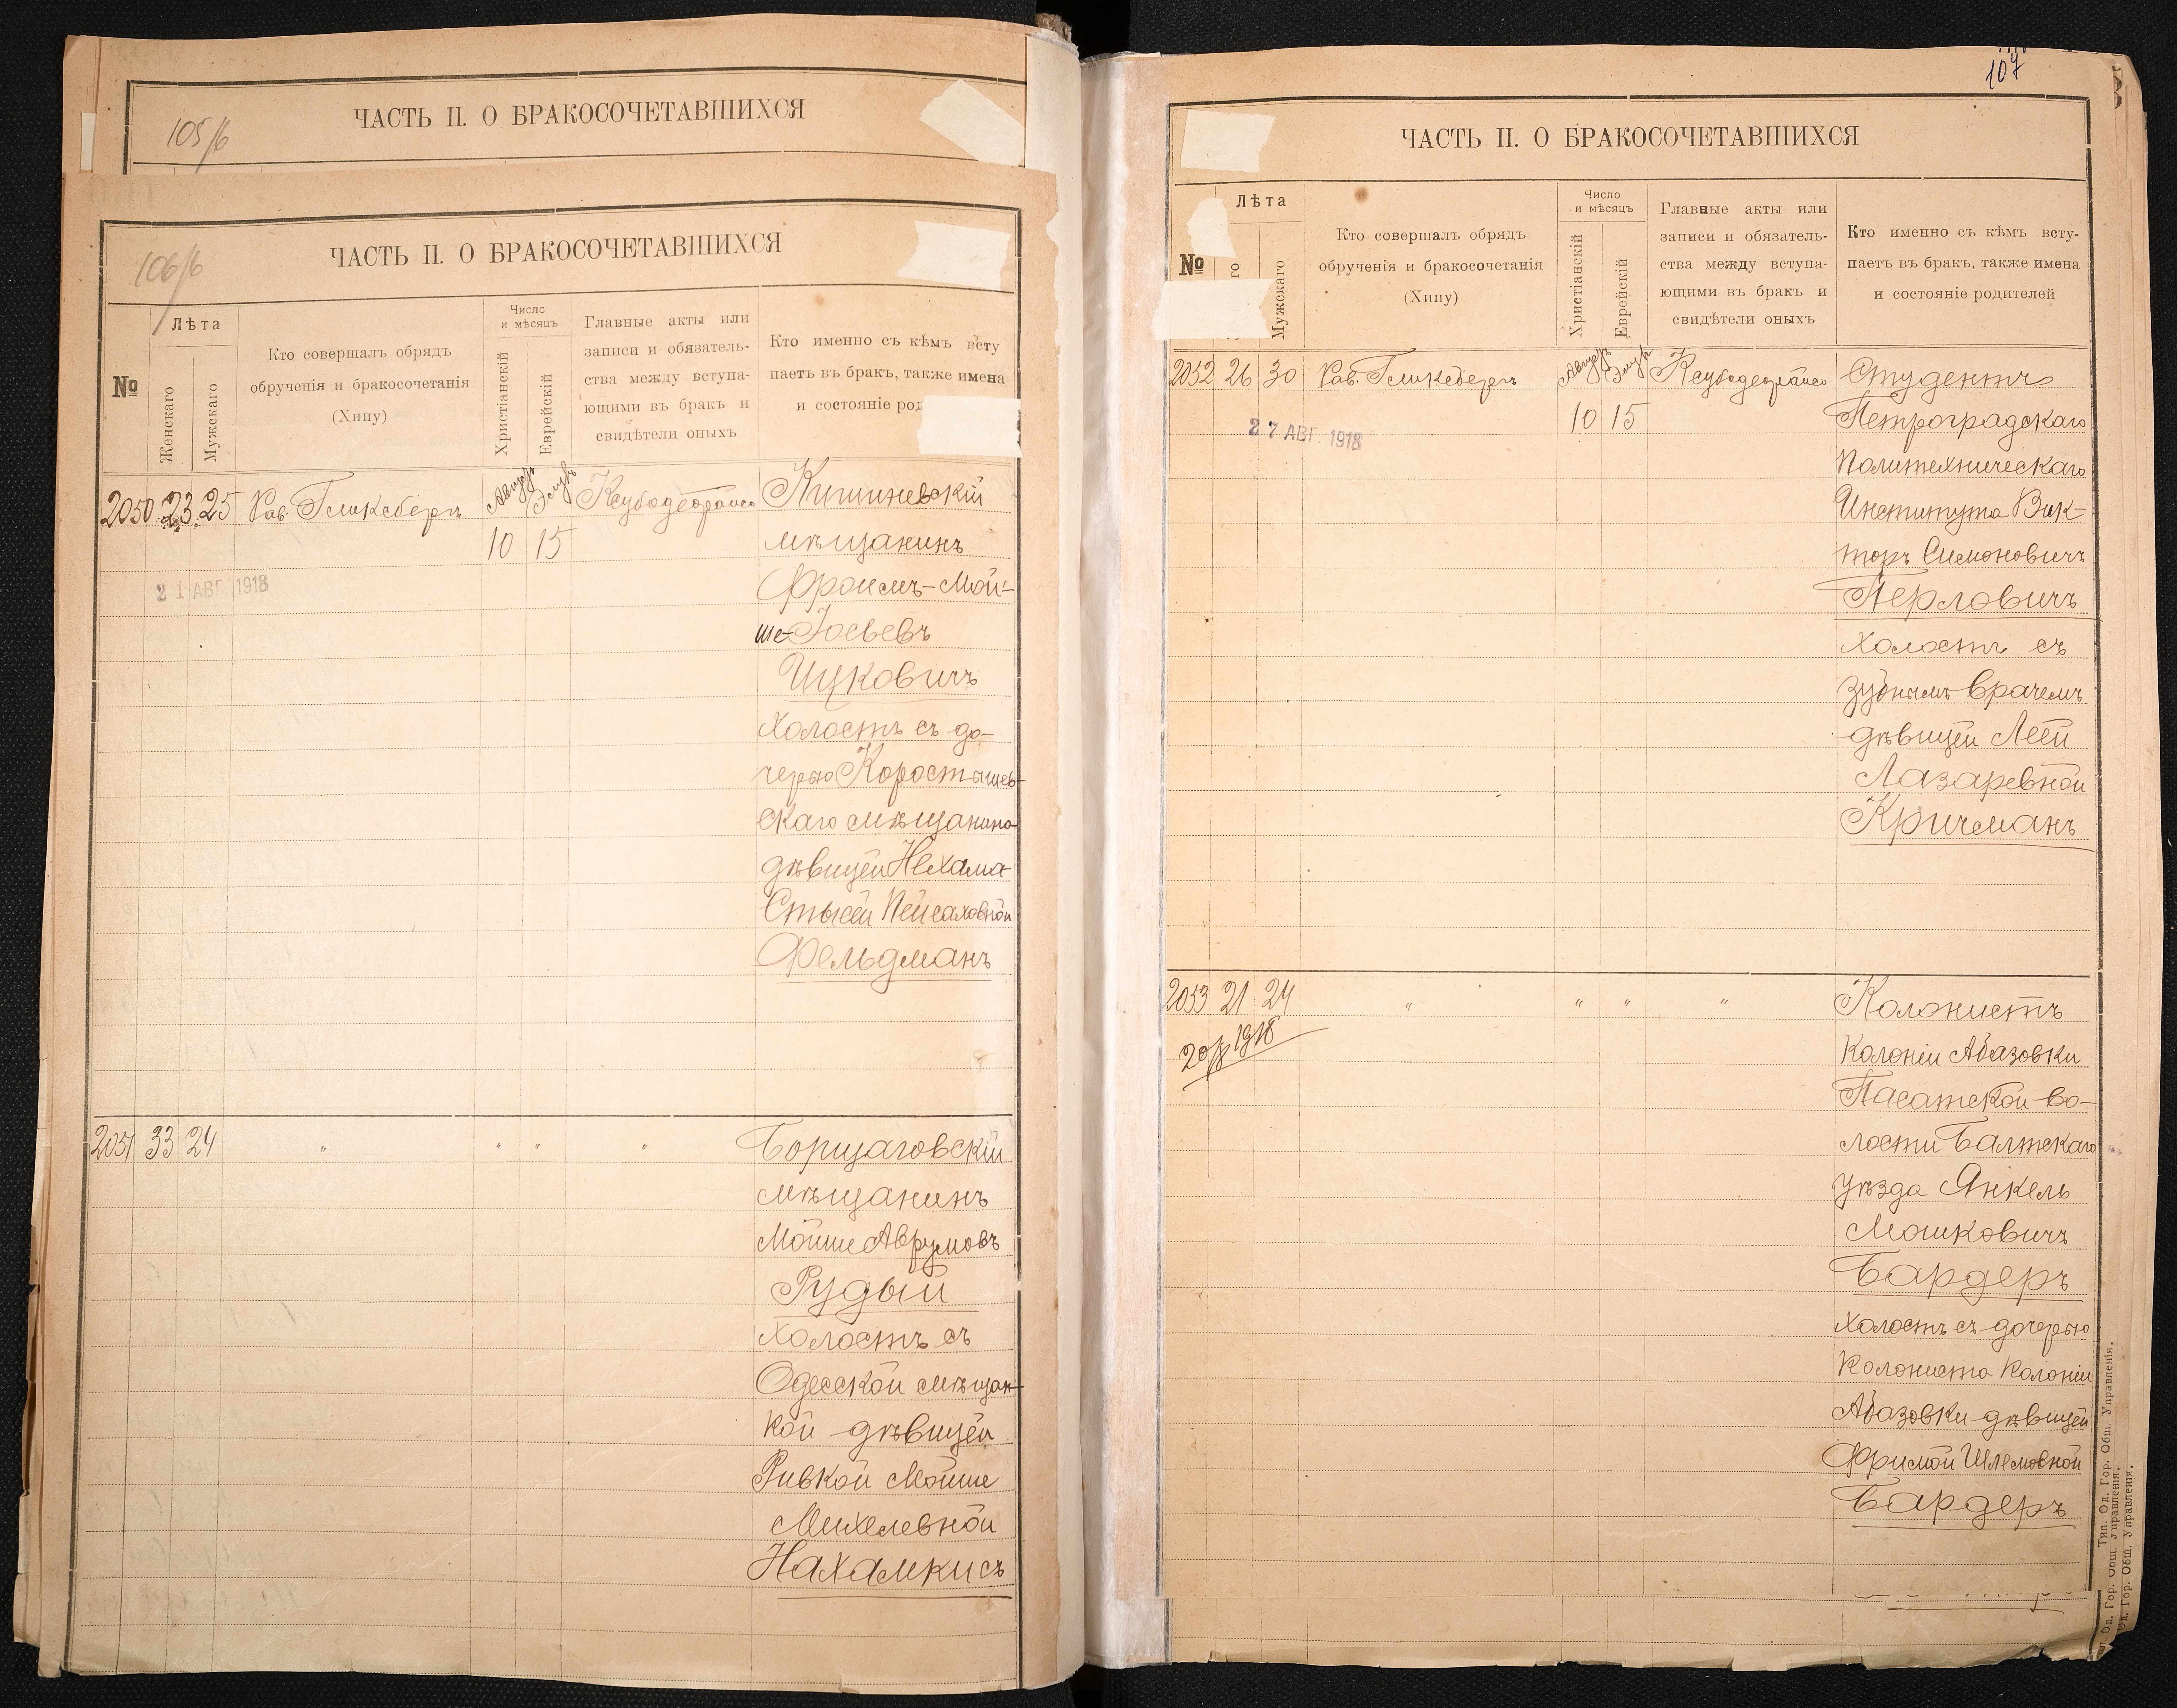 ЧАСТЬ II. О БРАКОСОЧЕТАВШИХСЯ
105/6
ЧАСТЬ II. О БРАКОСОЧЕТАВШИХСЯ
106/6
№
Лѣта
Женскаго
Мужскаго
Кто совершалъ обрядъ
обрученія и бракосочетанія
(Хипу)
Число
и мѣсяцъ
Христіанскій
Еврейскій
Главные акты или
записи и обязатель-
ства между вступа-
ющими въ бракъ и
свидѣтели оныхъ
Кто именно съ кѣмъ всту
паетъ въ бракъ, также имена
и состояніе род
2050 23 25 Рав. Гликсбергъ Августъ Элулъ Кишиневскій
10 15 мѣщанинъ
21 АВГ. 1918
Фроимъ-Мой-
ше-Іосьевъ
Ицковичъ
холостъ съ до-
черью Коростышев-
скаго мѣщанина
дѣвицей Нехама-
Стысей Пейсаховной
Фельдманъ
2051 33 24 " " " " Борщаговскій
мѣщанинъ
Мойше Аврумовъ
Рудый
холостъ съ
Одесской мѣщан-
кой дѣвицей
Ривкой Мойше
Михелевной
Нахамкисъ
107
ЧАСТЬ II. О БРАКОСОЧЕТАВШИХСЯ
№
Лѣта
го
Мужскаго
Кто совершалъ обрядъ
обрученія и бракосочетанія
(Хипу)
Число
и мѣсяцъ
Христіанскій
Еврейскій
Главные акты или
записи и обязатель-
ства между вступа-
ющими въ бракъ и
свидѣтели оныхъ
Кто именно съ кѣмъ всту-
паетъ въ бракъ, также имена
и состояніе родителей
2052 26 30 Рав. Гликсбергъ Августъ Элулъ Студентъ
10 15 Петроградскаго
27 АВГ. 1918
Политехническаго
Института Вик-
торъ Симоновичъ
Перловичъ
холостъ съ
зубнымъ врачемъ
дѣвицей Леей
Лазаревной
Кричманъ
2053 21 24 " " " " Колонистъ
20/8 1918
колоніи Абазовки
Пасатской во-
лости Балтскаго
уѣзда Янкель
Мошковичъ
Бардеръ
холостъ съ дочерью
колониста колоніи
Абазовки дѣвицей
Фримой Шлемовной
Бардеръ
Тип. Од. Гор. Общ. Управленія.
Од. Гор. Общ. Управленія.
Од. Гор. Общ. Управленія.